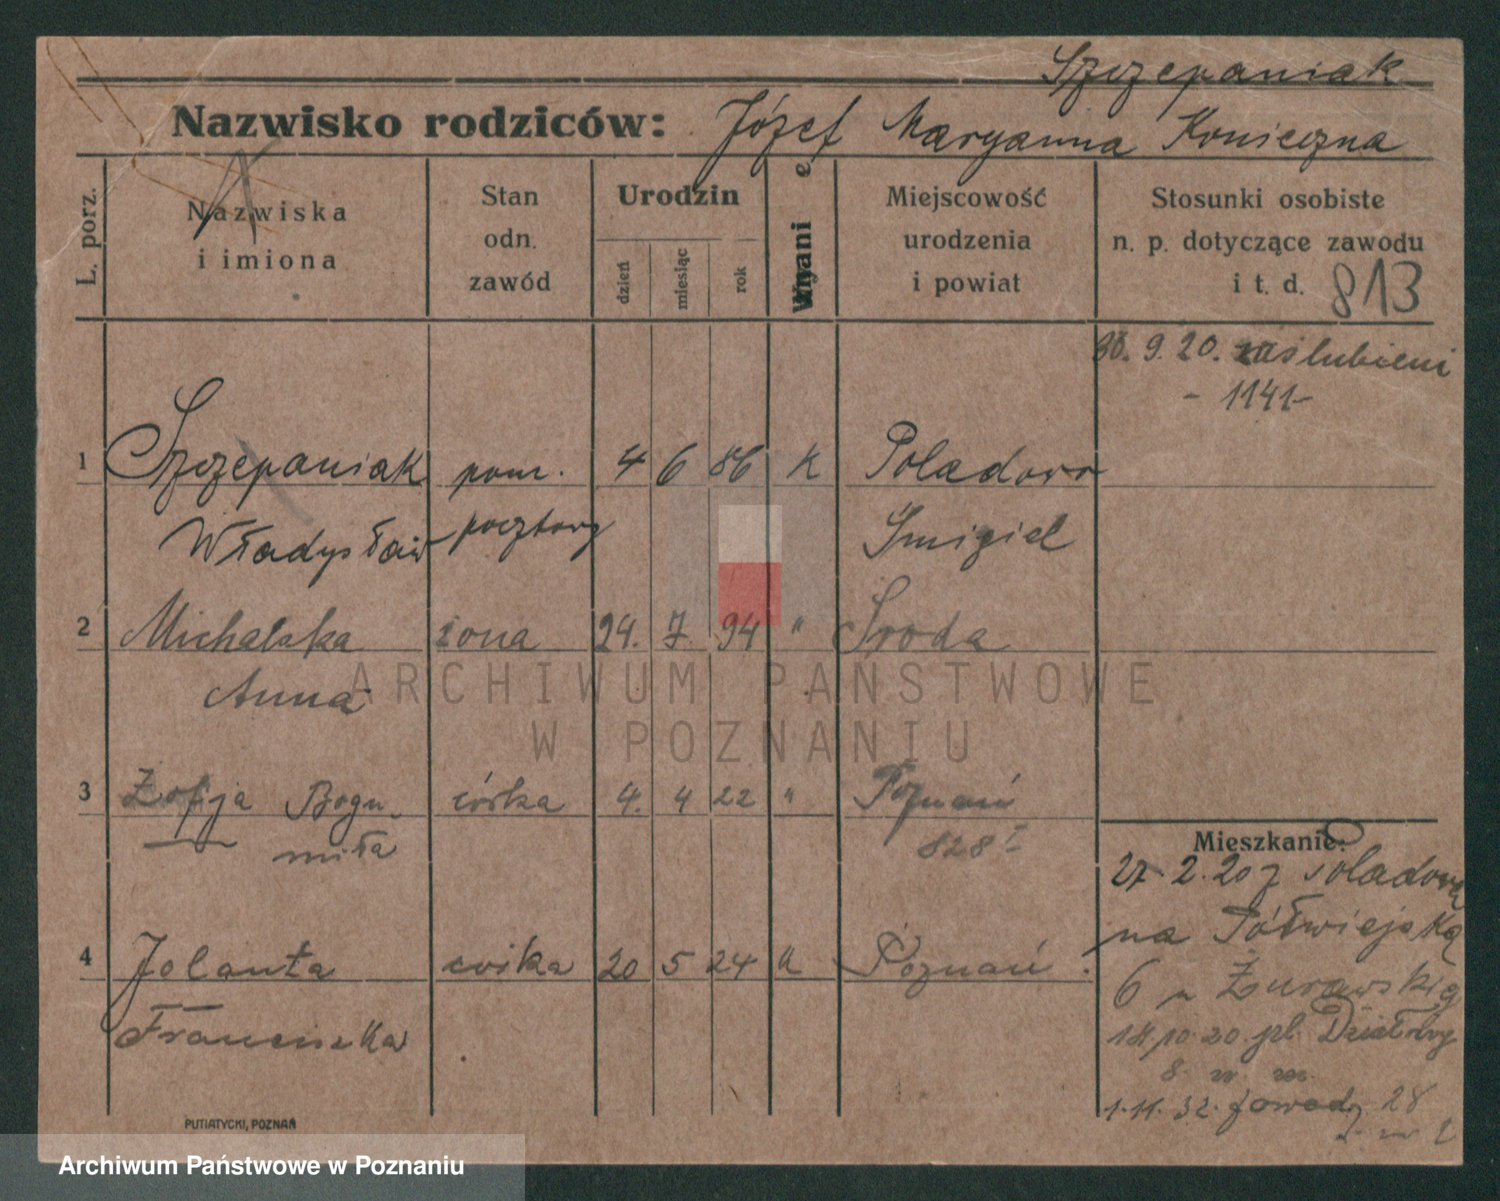 Szczepaniak
Nazwisko rodziców: Józef Maryanna Konieczna
L. porz.
Nazwiska
i imiona
Stan
odn.
zawód
Urodzin
dzień
miesiąc
rok
Miejscowość
urodzenia
i powiat
Stosunki osobiste
n. p. dotyczące zawodu
i t. d. 813
9. 20. zaślubieni
- 1141 -
1 Szczepaniak pom. 4 6 86 K Poladowo
Władysław pocztowy Śmigiel
2 Michalska żona 24. 7. 94 " Środa
Anna
3 Zofja Bogu- córka 4. 4 22 " Poznań
miła 828 I
4 Jolanta córka 20 5 24 K Poznań.
Franciszka
Mieszkanie:
27. 2. 20 z Poladowa
na Półwiejską
6 Żurawskię
18. 10. 20 pl. Działowy
8
1. 11. 32. 28
PUTIATYCKI, POZNAŃ
ARCHIWUM PAŃSTWOWE
W POZNANIU
Archiwum Państwowe w Poznaniu